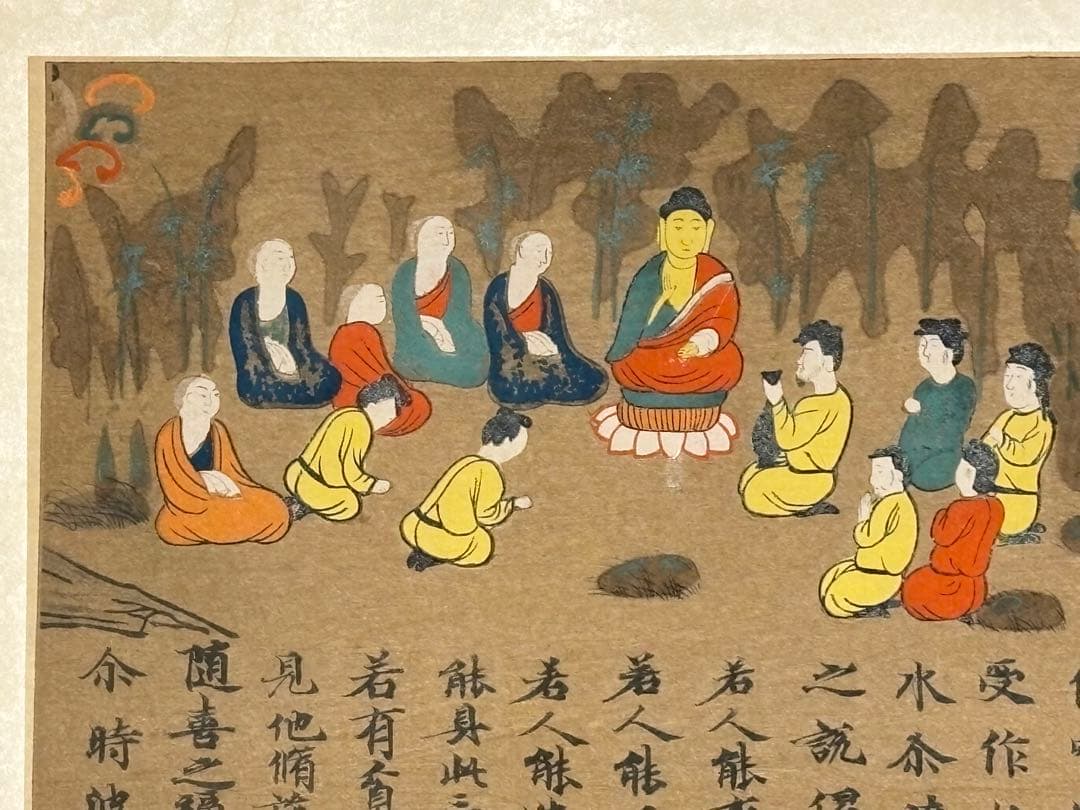 受作
水尒
之說
若人能
若人能
若人能
能身此
若有貧
見他脩
随喜之
尒時波